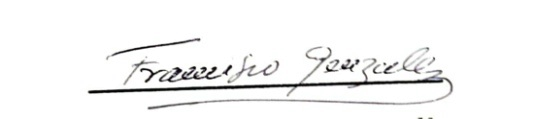 Francisco Gonzalez